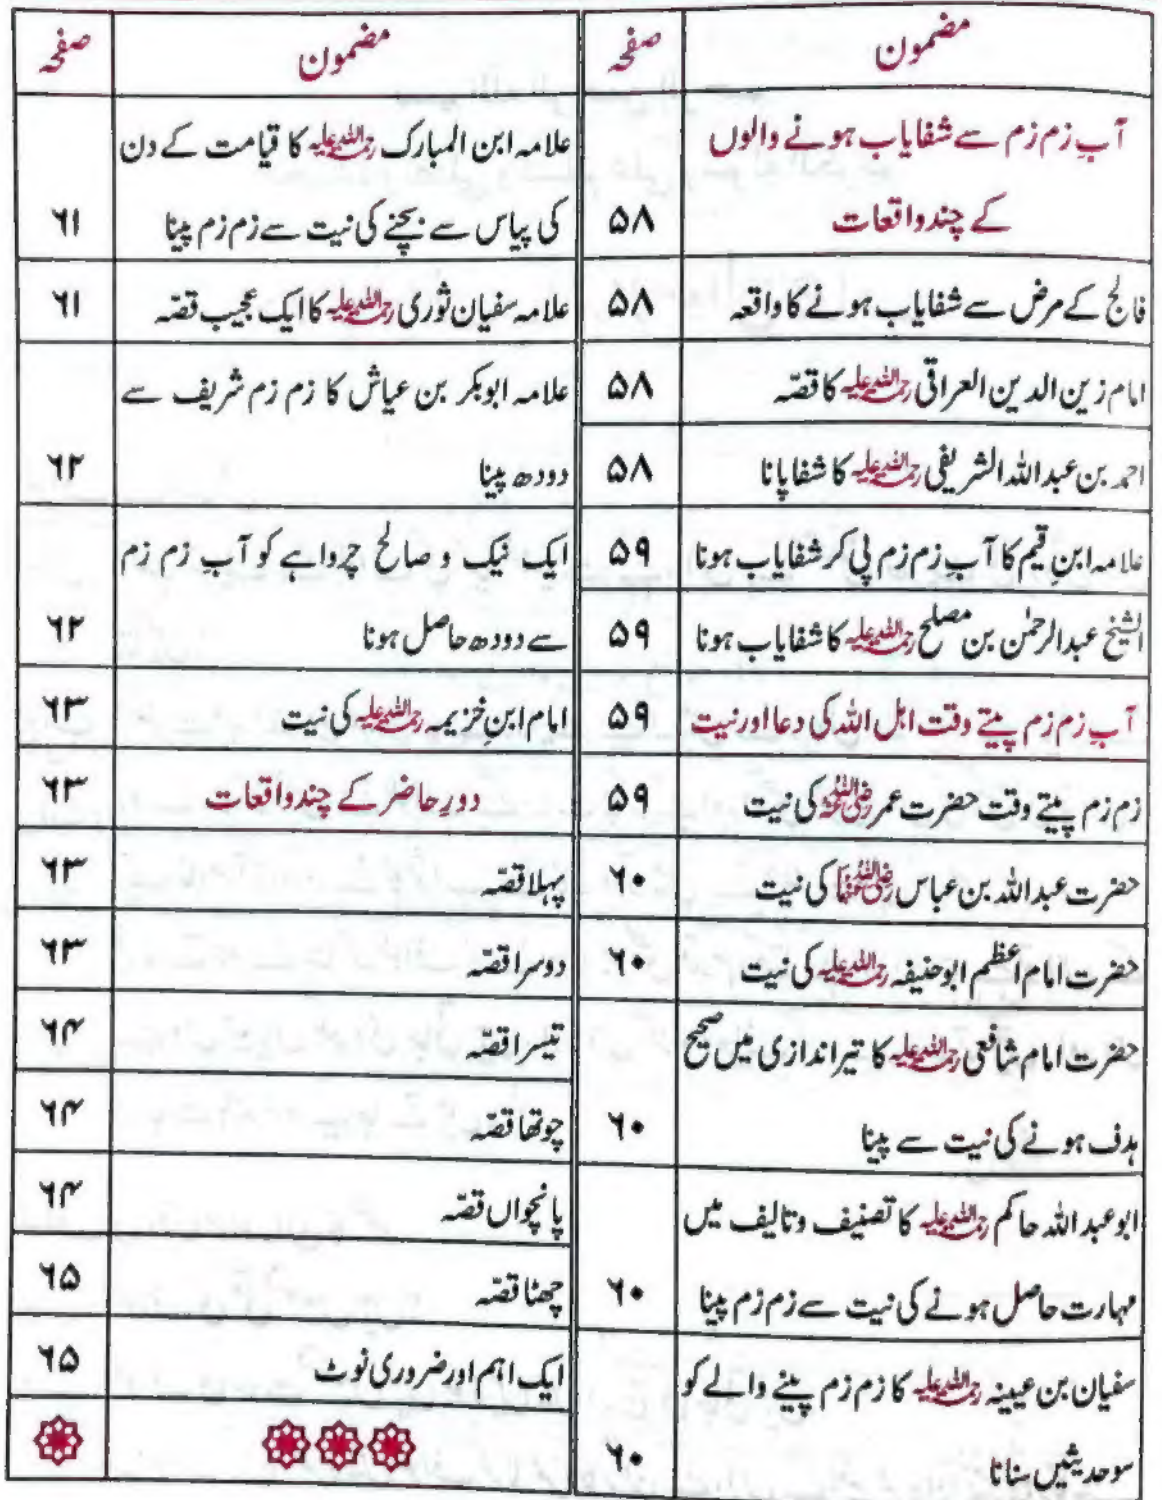 مضمون صفحہ
آبِ زم زم سے شفایاب ہونے والوں
کے چند واقعات ۵۸
فالج کے مرض سے شفایاب ہونے کا واقعہ ۵۸
امام زین الدین العراقی رحمۃ اللہ علیہ کا قصّہ ۵۸
احمد بن عبداللہ الشریفی رحمۃ اللہ علیہ کا شفا پانا ۵۸
علامہ ابنِ قیم کا آبِ زم زم پی کر شفایاب ہونا ۵۹
الشیخ عبدالرحمٰن بن مصلح رحمۃ اللہ علیہ کا شفایاب ہونا ۵۹
آبِ زم زم پیتے وقت اہل اللہ کی دعا اور نیت ۵۹
زم زم پیتے وقت حضرت عمر رضی اللہ عنہ کی نیت ۵۹
حضرت عبداللہ بن عباس رضی اللہ عنہما کی نیت ۶۰
حضرت امام اعظم ابوحنیفہ رحمۃ اللہ علیہ کی نیت ۶۰
حضرت امام شافعی رحمۃ اللہ علیہ کا تیر اندازی میں صحیح
ہدف ہونے کی نیت سے پینا ۶۰
ابوعبداللہ حاکم رحمۃ اللہ علیہ کا تصنیف وتالیف میں
مہارت حاصل ہونے کی نیت سے زم زم پینا ۶۰
سفیان بن عیینہ رحمۃ اللہ علیہ کا زم زم پینے والے کو
سو حدیثیں سنانا ۶۰
مضمون صفحہ
علامہ ابن المبارک رحمۃ اللہ علیہ کا قیامت کے دن
کی پیاس سے بچنے کی نیت سے زم زم پینا ۶۱
علامہ سفیان ثوری رحمۃ اللہ علیہ کا ایک عجیب قصّہ ۶۱
علامہ ابوبکر بن عیاش کا زم زم شریف سے
دودھ پینا ۶۲
ایک نیک و صالح چرواہے کو آبِ زم زم
سے دودھ حاصل ہونا ۶۲
امام ابنِ خزیمہ رحمۃ اللہ علیہ کی نیت ۶۳
دورِ حاضر کے چند واقعات ۶۳
پہلا قصّہ ۶۳
دوسرا قصّہ ۶۳
تیسرا قصّہ ۶۴
چوتھا قصّہ ۶۴
پانچواں قصّہ ۶۴
چھٹا قصّہ ۶۵
ایک اہم اور ضروری نوٹ ۶۵